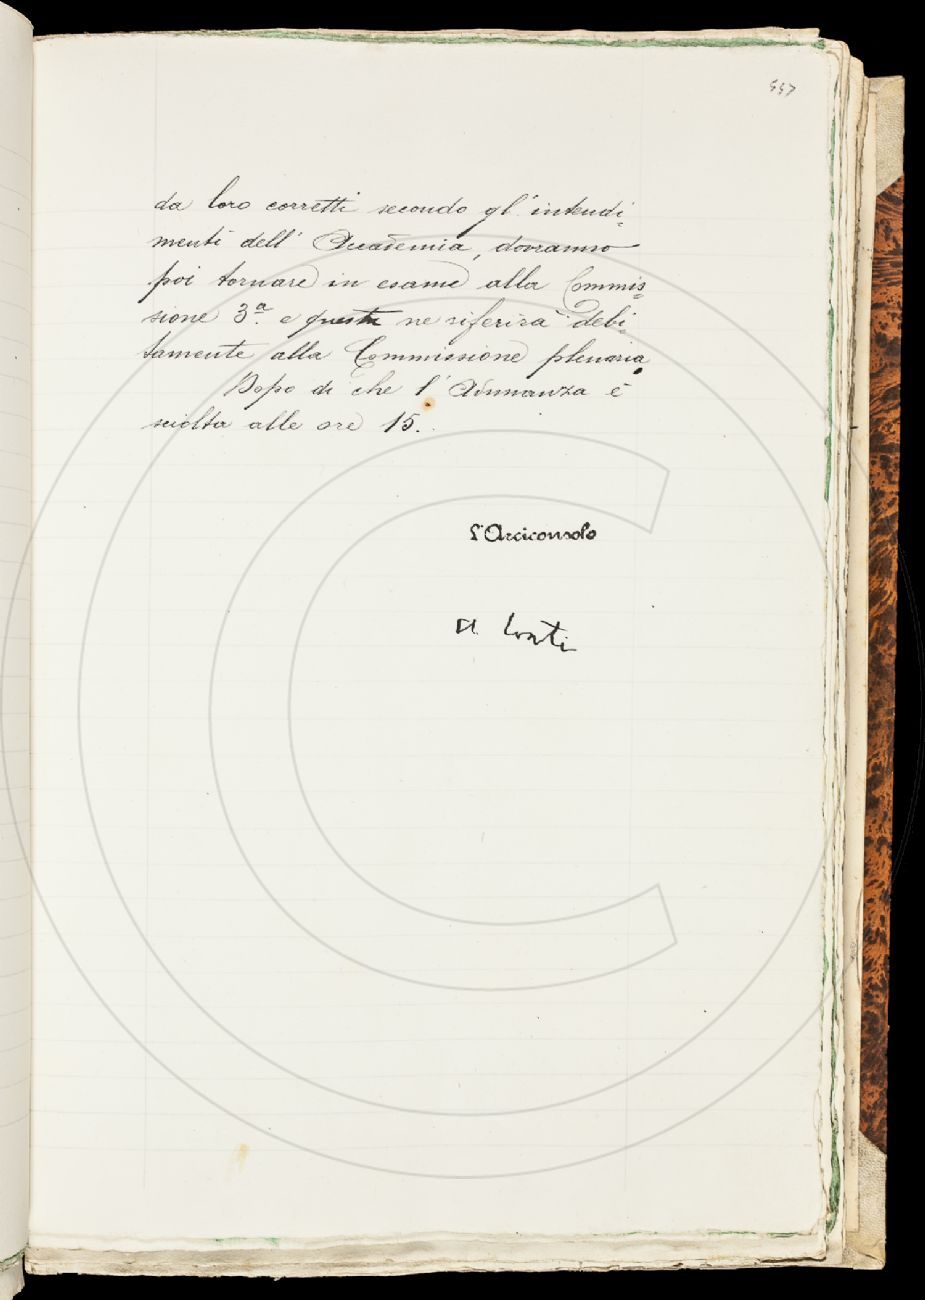 557
da loro corretti secondo gl' intendi-
menti dell' Accademia, dovranno
poi tornare in esame alla Commis-
sione 3.ª e questa ne riferirà debi-
tamente alla Commissione plenaria.
Dopo di che l' Adunanza è
sciolta alle ore 15.
L'Arciconsolo
A Conti